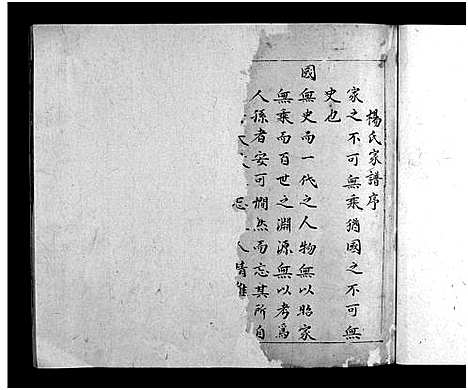 楊氏家譜序
家之不可無乘猶國之不可無
史也
國無史而一代之人物無以昭家
無乘而百世之淵源無以考爲
人孫者安可憪然而忘其所自
忘 人情